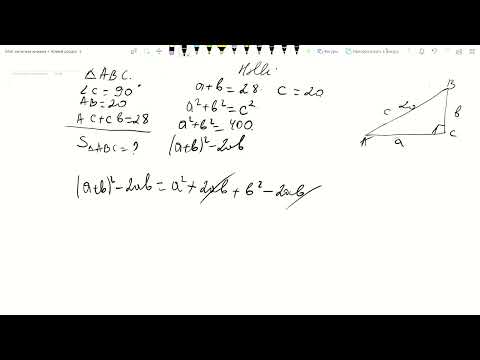 △ABC.
∠C = 90°
AB = 20
AC + CB = 28
S△ABC = ?
a + b = 28   c = 20
a² + b² = c²
a² + b² = 400.
(a+b)² - 2ab
(a+b)² - 2ab = a² + 2ab + b² - 2ab
B
c 20
b
A
a
C